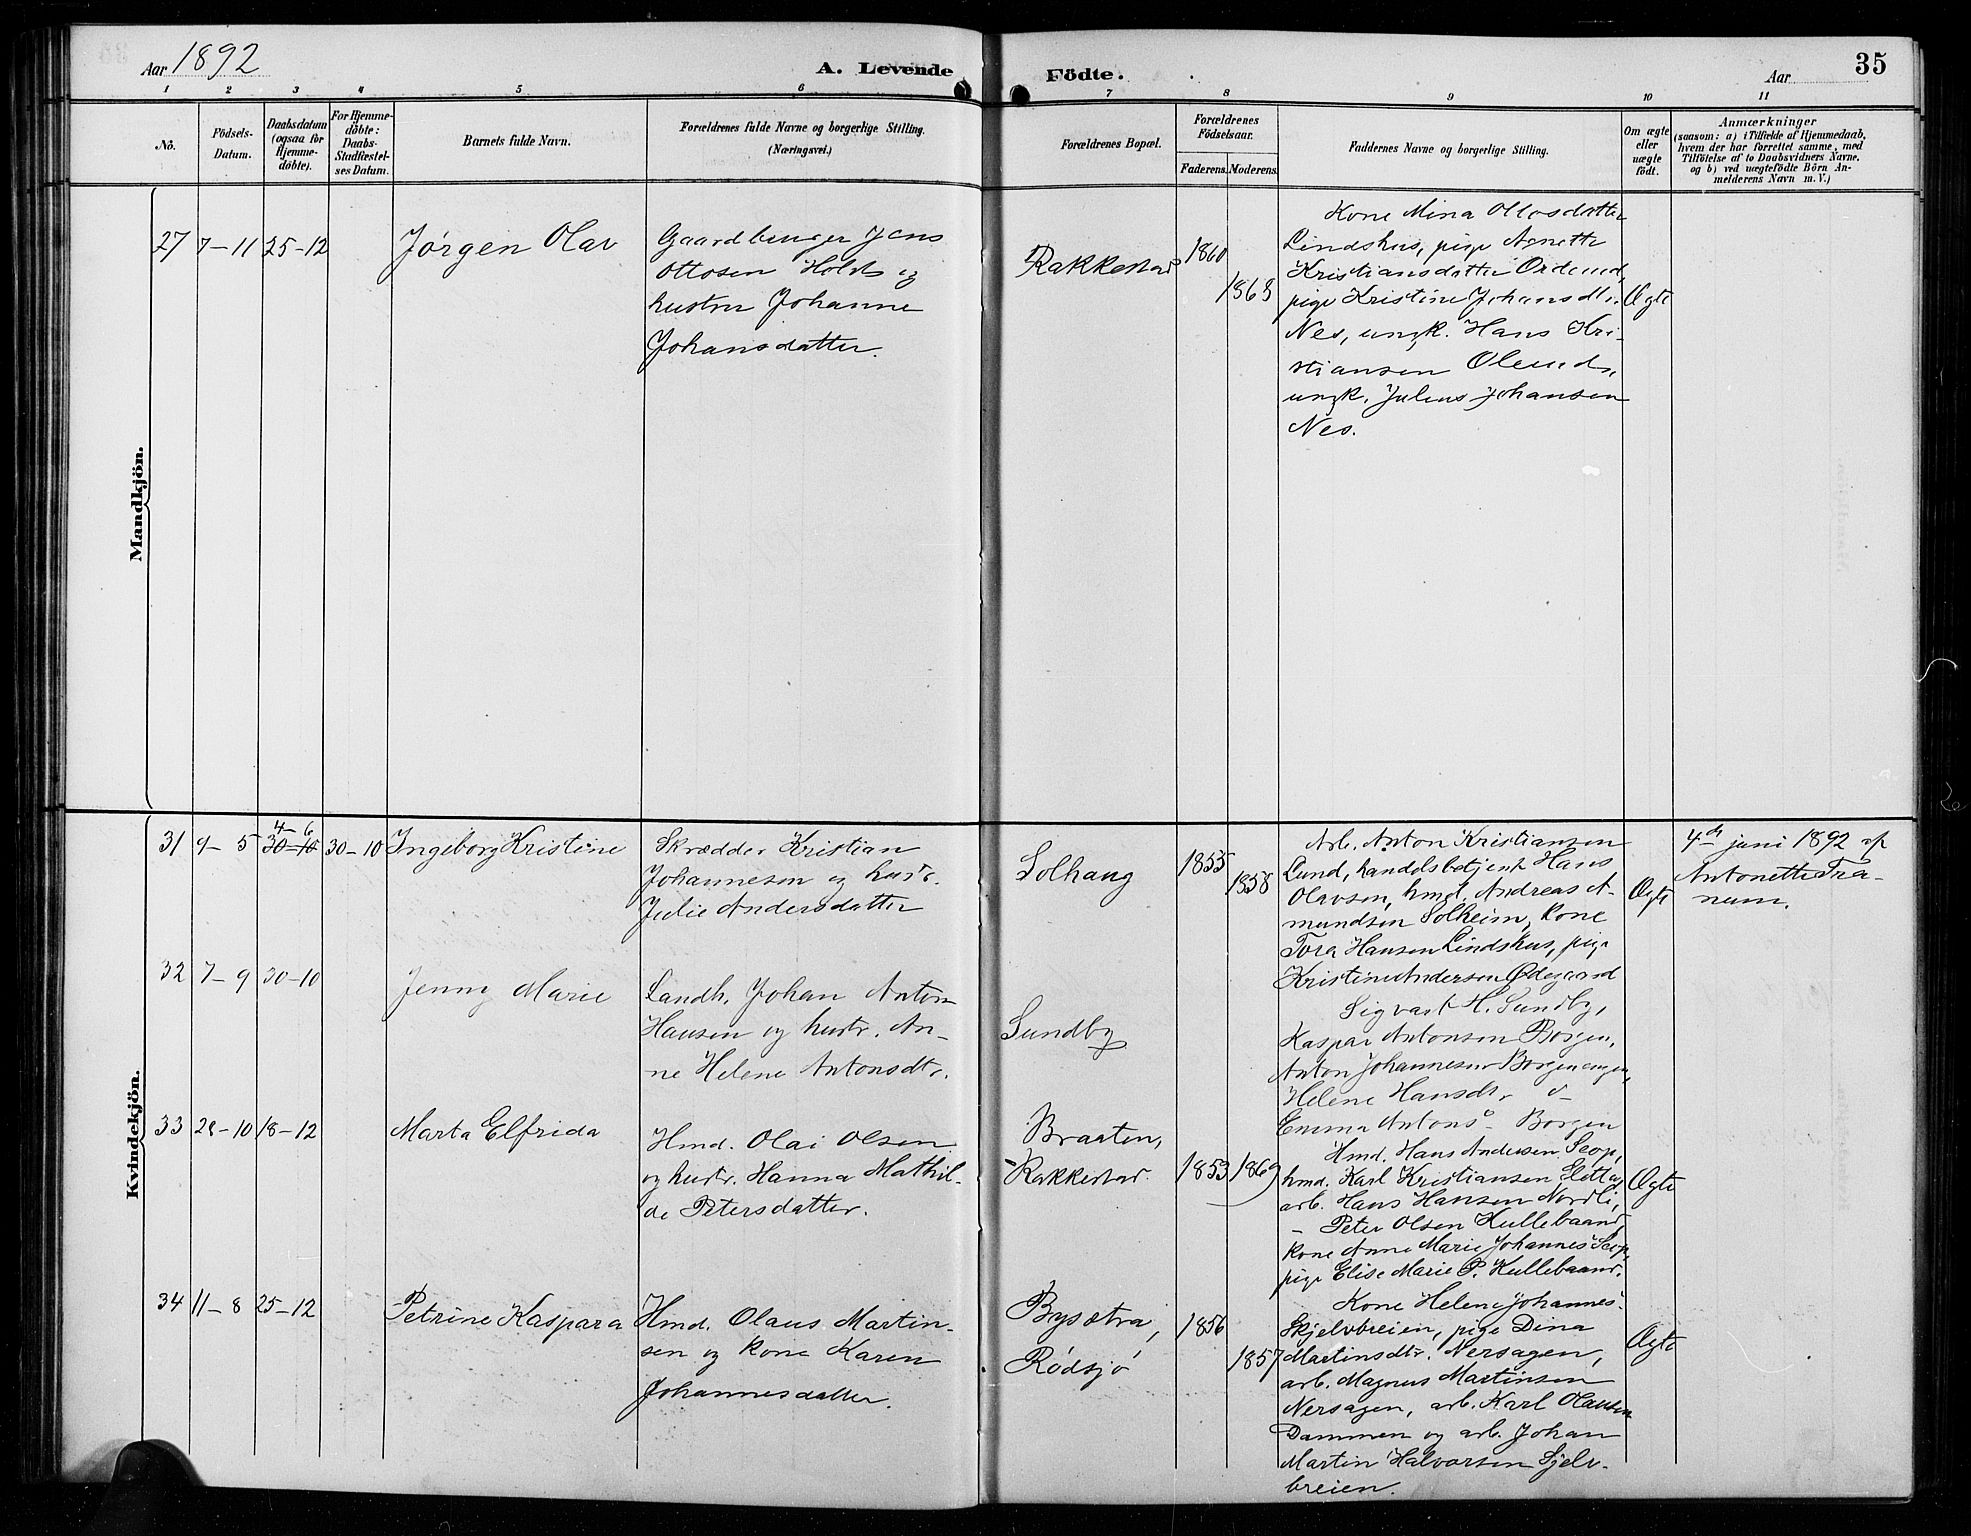 Aar 1892
A. Levende Födte.
Aar
35
1 2 3 4 5 6 7 8 9 10 11
No.
Födsels-Datum.
Daabsdatum (ogsaa for Hjemme-döbte).
For Hjemme-döbte: Daabs-Stadfæstel-ses Datum.
Barnets fulde Navn.
Forældrenes fulde Navne og borgerlige Stilling.
(Næringsvei.)
Forældrenes Bopæl.
Forældrenes Födselsaar.
Faderens. Moderens.
Faddernes Navne og borgerlige Stilling.
Om ægte eller uægte födt.
Anmærkninger
(saasom: a) i Tilfælde af Hjemmedaab,
hvem der har forrettet samme, med
Tilföielse af to Daabsvidners Navne,
og b) ved uægtefödte Börn An-
melderens Navn m. V.)
Mandkjön.
27 7-11 25-12
Jørgen Olav
Gaardbruger Jens
Ottosen Holst og
hustru Johanne
Johansdatter.
Rakkestad
1860
1868
Kone Mina Ottosdatter
Lindshus, pige Anette
Kristiansdatter
pige Kristine Johansdtr.
Nes, ungk. Hans Kri-
stiansen
ungk. Julius Johansen
Nes.
Ægte
Kvindekjön.
31 9-5 4-6 30-10 30-10
Ingeborg Kristine
Skrædder Kristian
Johannesen og hustr.
Julie Andersdatter
Solhaug
1855
1858
Arb. Anton Kristiansen
Lund, handelsbetjent Hans
Olavsen, hmd. Andreas A-
mundsen Solheim, kone
Tora Hansen Lindshus, pige
Kristine Andersen Ødegaard
Ægte
4de juni 1892 af
Antonette Tra-
num.
32 7-9 30-10
Jenny Marie
Landh. Johan Anton
Hansen og hustr. An-
ne Helene Antonsdtr.
Sundby
Sigvart H. Sundby,
Kaspar Antonsen Borgen,
Anton Johannesen Borgenengen,
Helene Hansdtr.
Emma Antons- Borgen
33 28-10 18-12
Marta Elfrida
Hmd. Olai Olsen
og hustr. Hanna Mathil-
de Petersdatter.
Braaten,
Rakkestad.
1853 1869
Hmd. Hans Andersen Scop,
hmd. Karl Kristiansen
arb. Hans Hansen Nordli,
- Peter Olsen Kullebaand,
kone Anne Marie Johannes Scop,
pige Elise Marie P. Kullebaand.
Ægte
34 11-8 25-12
Petrine Kaspara
Hmd. Olaus Martin-
sen og kone Karen
Johannesdatter.
Bysætra,
Rödsjö
1856
1857
Kone Helene Johannes.
Skjelvbreien, pige Dina
Martinsdtr. Nersagen,
arb. Magnus Martinsen
Nersagen, arb. Karl Olausen
Dammen og arb. Johan
Martin Halvorsen Sjelv-
breien.
Ægte